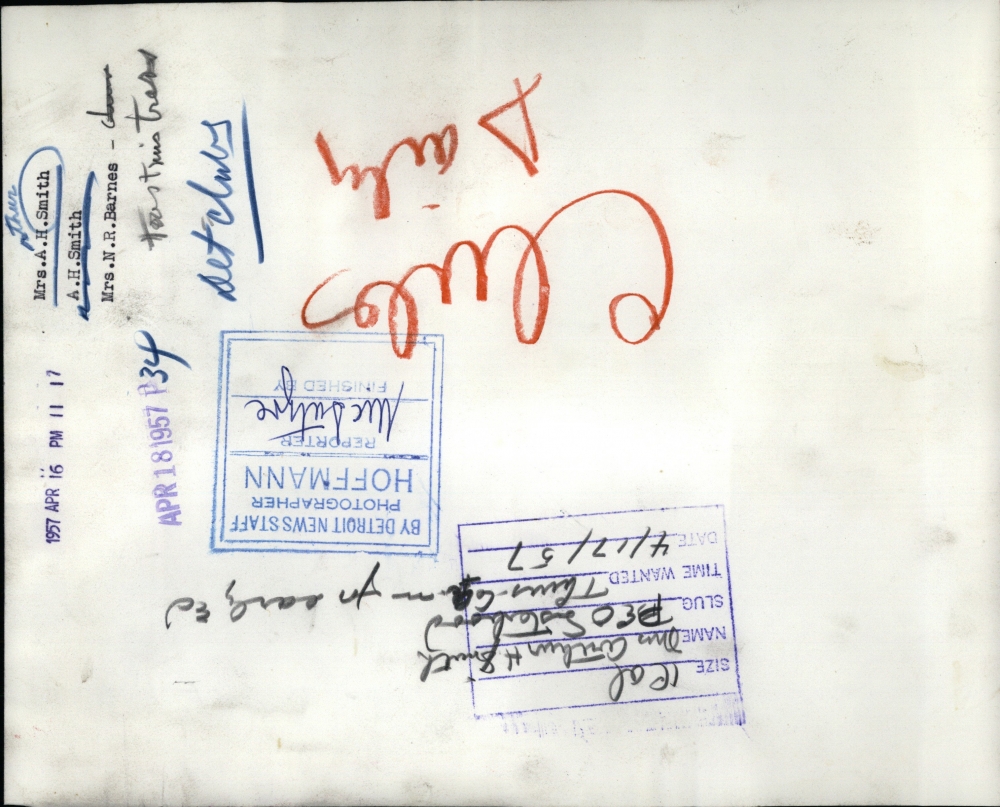 Mrs.A.H.Smith
A.H.Smith
Mrs.N.R.Barnes -
toastmistress
Det clubs
1957 APR 16 PM 11 17
APR 18 1957 P34
Daily
Clubs
BY DETROIT NEWS STAFF
PHOTOGRAPHER
HOFFMANN
REPORTER
FINISHED BY
SIZE 1 Col
NAME Mrs Arthur H Smith
SLUG PEO Sisterhood
TIME WANTED Thurs for early ed
DATE 4/17/57